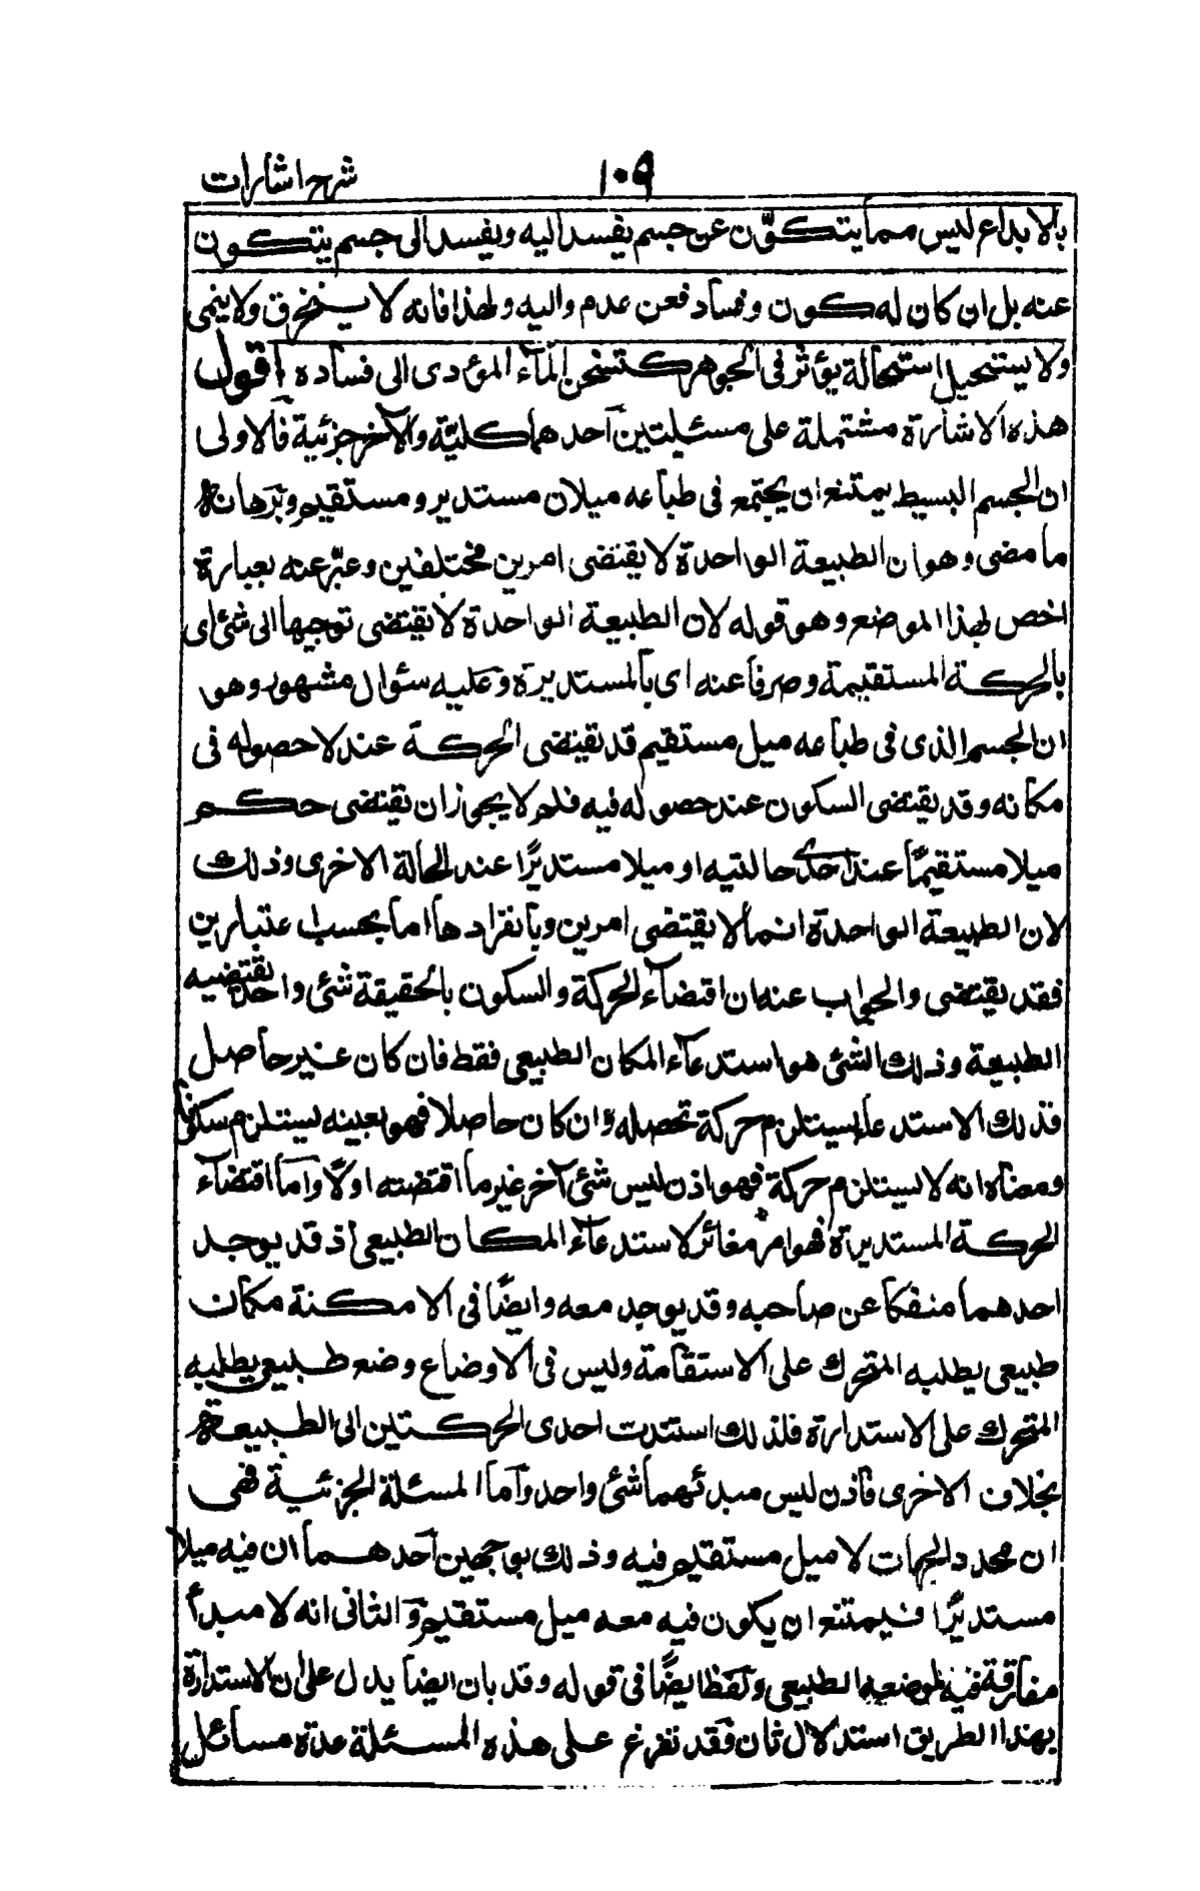 شرح اشارات ١٠٩
بالابداع ليس مما يتكوّن عن جسم يفسد اليه ويفسد الى جسم يتكون
عنه بل ان كان له كون وفساد فعن عدم واليه ولهذا فانه لا ينخرق ولا ينمى
ولا يستحيل استحالة يؤثر فى الجوهر كتسخن الماء المؤدى الى فساده اقول
هذه الاشارة مشتملة على مسئلتين احدهما كليّة والآخر جزئية فالاولى
ان الجسم البسيط يمتنع ان يجتمع فى طباعه ميلان مستدير ومستقيم وبرهانه
ما مضى وهو ان الطبيعة الواحدة لا يقتضى امرين مختلفين وعبّر عنه بعبارة
اخص لهذا الموضع وهو قوله لان الطبيعة الواحدة لا يقتضى توجيها الى شئ اى
بالحركة المستقيمة وصرفا عنه اى بالمستديرة وعليه سئوال مشهور وهو
ان الجسم الذى فى طباعه ميل مستقيم قد يقتضى الحركة عند لا حصوله فى
مكانه وقد يقتضى السكون عند حصوله فيه فلم لا يجوز ان يقتضى حكم
ميلا مستقيمًا عند احدى حالتيه او ميلا مستديرًا عند الحالة الاخرى وذلك
لان الطبيعة الواحدة انما لا يقتضى امرين وبانفرادها اما بحسب اعتبارين
فقد يقتضى والجواب عنه ان اقتضاء الحركة والسكون بالحقيقة شئ واحد يقتضيه
الطبيعة وذلك الشئ هو استدعاء المكان الطبيعى فقط فان كان غير حاصل
فذلك الاستدعاء يستلزم حركة تحصله وان كان حاصلا فهو بعينه يستلزم سكونا
ومعناه انه لا يستلزم حركة فهو اذن ليس شئ آخر غير ما اقتضته اولًا واما اقتضاء
الحركة المستديرة فهو امر مغائر لاستدعاء المكان الطبيعى اذ قد يوجد
احدهما منفكا عن صاحبه وقد يوجد معه وايضًا فى الامكنة مكان
طبيعى يطلبه المتحرك على الاستقامة وليس فى الاوضاع وضع طبيعى يطلبه
المتحرك على الاستدارة فلذلك استندت احدى الحركتين الى الطبيعة
بخلاف الاخرى فاذن ليس مبدئهما شئ واحد وآما المسئلة الجزئية فهى
ان محدد الجهات لا ميل مستقيم فيه وذلك بوجهين احدهما ان فيه ميلا
مستديرًا فيمتنع ان يكون فيه معه ميل مستقيم والثانى انه لا مبدأ
مفارقة فيه لموضعه الطبيعى ولفظ ايضًا فى قوله وقد بان ايضا يدل على ان الاستدارة
بهذا الطريق استدلال ثان فقد تفرغ على هذه المسئلة عدة مسائل